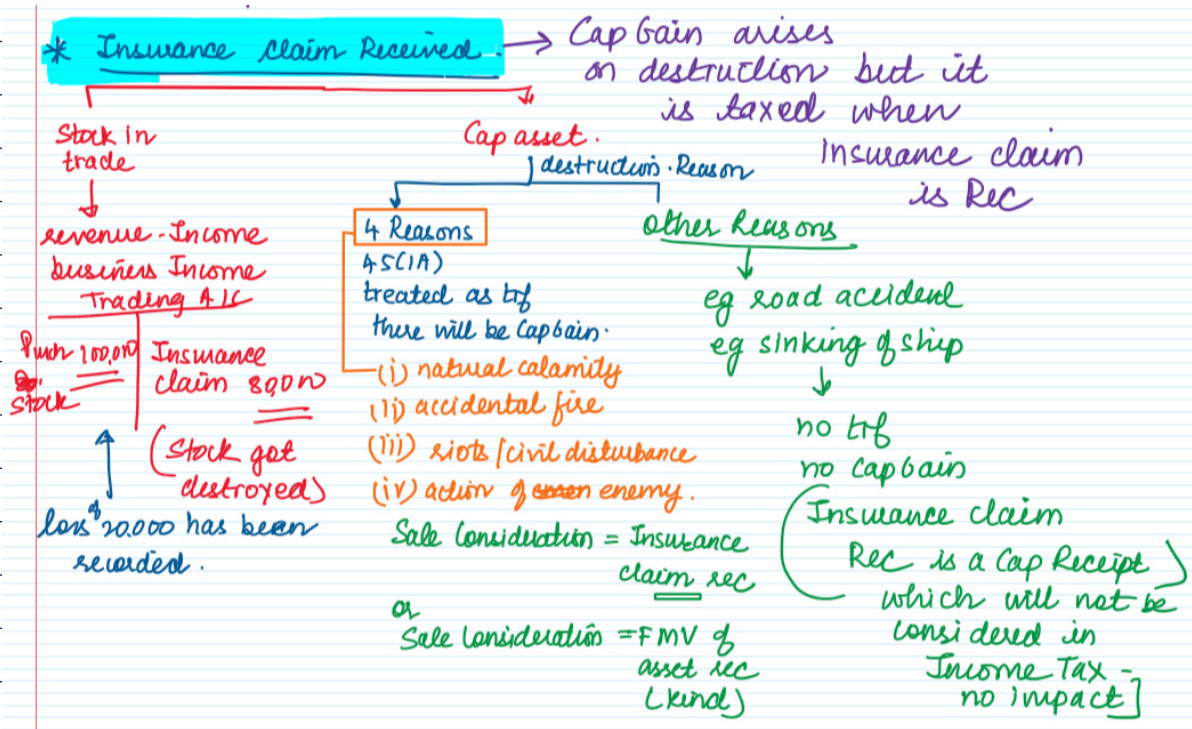 * Insurance claim Received. → Cap Gain arises
on destruction but it
is taxed when
Insurance claim
is Rec
Stock in
trade
revenue - Income
business Income
Trading A/C
Purch 100,000
Stock
Insurance
claim 80,000
(Stock got
destroyed)
loss of 20,000 has been
recorded.
Cap asset.
destruction. Reason
4 Reasons
45(1A)
treated as trf
there will be Cap Gain.
(i) natural calamity
(ii) accidental fire
(iii) riots/civil disturbance
(iv) action of enemy.
Sale Consideration = Insurance
claim rec
or
Sale Consideration = FMV of
asset rec
(kind)
other Reasons
eg road accident
eg sinking of ship
no trf
no cap Gain
(Insurance claim
Rec is a Cap Receipt)
which will not be
considered in
Income Tax -
no impact]